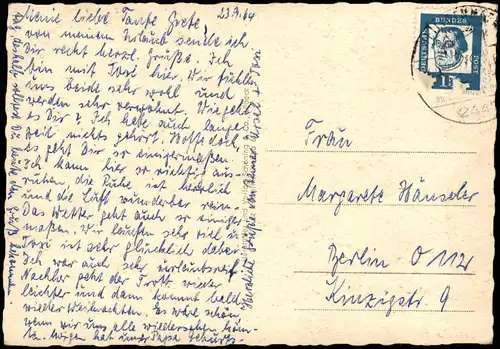 Meine liebe Tante Grete, 23.9.64
von meinem Urlaub sende ich
Dir recht herzl. Grüße. Ich
bin mit Josi hier. Wir fühlen
uns beide sehr wohl und
werden sehr verwöhnt. Wie geht
es Dir? Ich habe auch lange
Zeit nichts gehört. Hoffe doch,
es geht Dir so einigermaßen.
Ich kann hier so richtig aus-
ruhen, die Ruhe ist herrlich
und die Luft wunderbar rein.
Das Wetter geht auch so einiger-
maßen. Wir laufen sehr viel u.
Josi ist sehr glücklich dabei.
Ich war auch sehr urlaubsreif.
Nachher geht der Trott wieder
leichter und dann kommt bald
wieder Weihnachten. Es wäre schön
wenn wir uns alle wiedersehen könn-
ten. Morgen hat unser Papa Geburts-
tag, deshalb sollst Du heute den Gruß bekommen.
Herzliche Grüße von Deiner + Josi
DEUTSCHE BUNDESPOST
15
Frau
Margarete Hänseler
Berlin O 112
Kinzigstr. 9